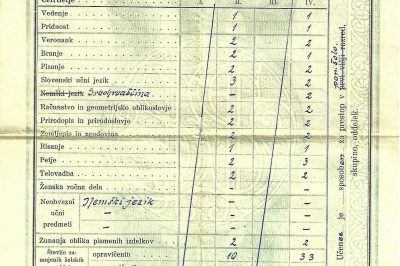 Četrtletje I. II. III. IV.
Vedenje 1 1
Pridnost 1 1
Veronauk 2 2
Branje 2 1
Pisanje 2 2
Slovenski učni jezik 3 2
Nemški jezik Srbohrvaščina – 2
Računstvo in geometrijsko oblikoslovje 2 2
Prirodopis in prirodoslovje 2 2
Zemljepis in zgodovina 2 2
Risanje 1 1
Petje 2 3
Telovadba 2 2
Ženska ročna dela – – –
Neobvezni Nemški jezik
učni –
predmeti –
Zunanja oblika pismenih izdelkov 2 2
Število za-
mujenih šolskih opravičenih 10 33
Učenec je sposoben za prestop v
skupino, oddelek.